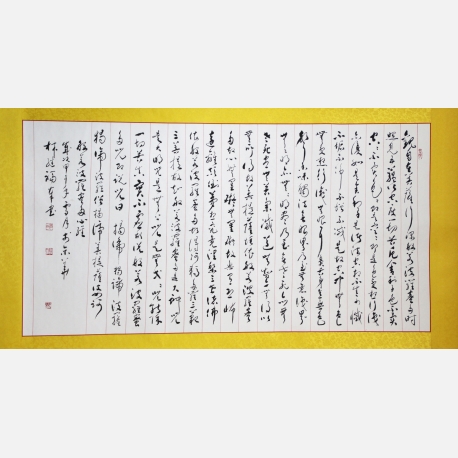 觀自在菩薩行深般若波羅蜜多時
照見五蘊皆空度一切苦厄舍利子色不異
空空不異色色即是空空即是色受想行識
亦復如是舍利子是諸法空相不生不滅
不垢不淨不增不減是故空中無色
無受想行識無眼耳鼻舌身意無色
聲香味觸法無眼界乃至無意識界
無無明亦無無明盡乃至無老死亦無
老死盡無苦集滅道無智亦無得以
無所得故菩提薩埵依般若波羅蜜
多故心無罣礙無罣礙故無有恐怖
遠離顛倒夢想究竟涅槃三世諸佛
依般若波羅蜜多故得阿耨多羅三藐
三菩提故知般若波羅蜜多是大神咒
是大明咒是無上咒是無等等咒能除
一切苦真實不虛故說般若波羅蜜
多咒即說咒曰揭諦揭諦波羅
揭諦波羅僧揭諦菩提薩婆訶
般若波羅蜜多心經
歲次甲午年月於京華
林福書